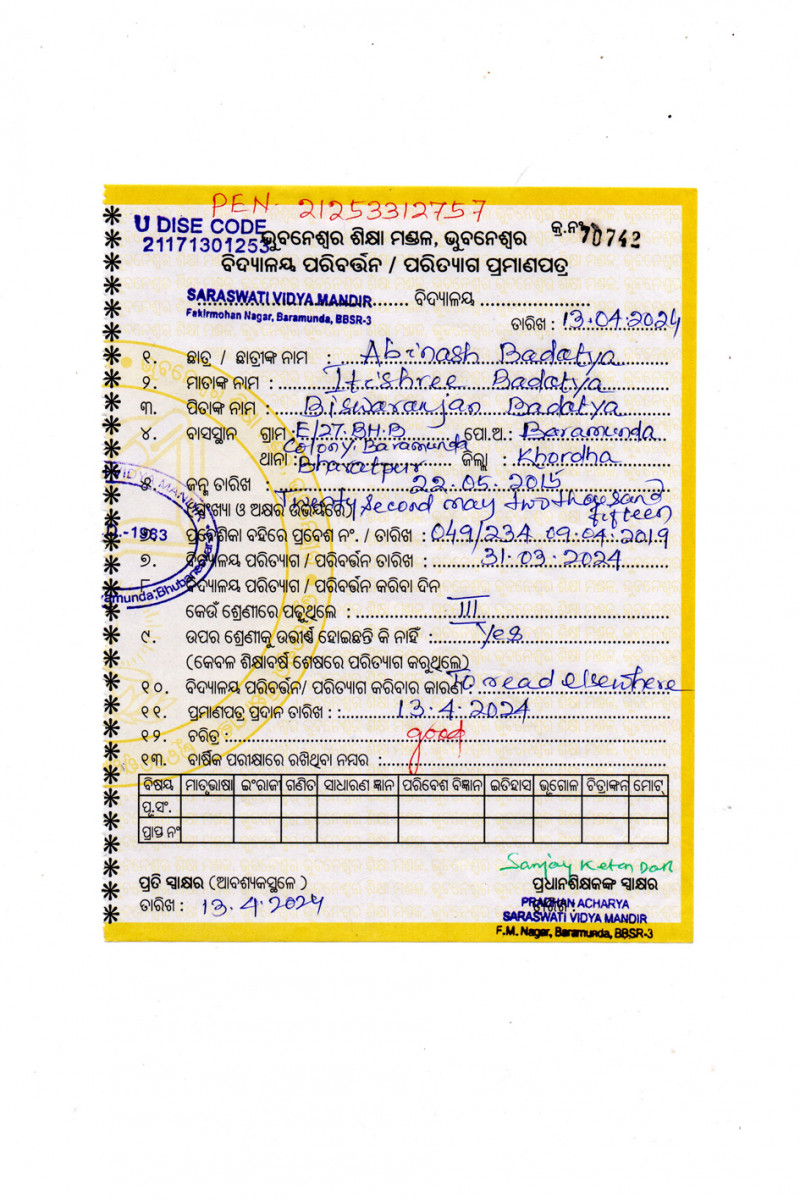 PEN. 21253312757
U DISE CODE
21171301253
ଭୁବନେଶ୍ୱର ଶିକ୍ଷା ମଣ୍ଡଳ, ଭୁବନେଶ୍ୱର କ୍ର.ନଂ 70742
ବିଦ୍ୟାଳୟ ପରିବର୍ତ୍ତନ / ପରିତ୍ୟାଗ ପ୍ରମାଣପତ୍ର
SARASWATI VIDYA MANDIR ବିଦ୍ୟାଳୟ
Fakirmohan Nagar, Baramunda, BBSR-3
ତାରିଖ : 13.04.2024
୧. ଛାତ୍ର / ଛାତ୍ରୀଙ୍କ ନାମ : Abinash Badatya
୨. ମାତାଙ୍କ ନାମ : Itishree Badatya
୩. ପିତାଙ୍କ ନାମ : Biswaranjan Badatya
୪. ବାସସ୍ଥାନ ଗ୍ରାମ : E/27.BH.B Colony, Baramunda ପୋ.ଅ.: Baramunda
ଥାନା : Bharatpur ଜିଲ୍ଲା : Khordha
୫. ଜନ୍ମ ତାରିଖ : 22.05.2015
(ସଂଖ୍ୟା ଓ ଅକ୍ଷର ଉଭୟରେ) Twenty second may two thousand fifteen
୬. ପ୍ରବେଶିକା ବହିରେ ପ୍ରବେଶ ନଂ. / ତାରିଖ : 049/234 09.04.2019
୭. ବିଦ୍ୟାଳୟ ପରିତ୍ୟାଗ / ପରିବର୍ତ୍ତନ ତାରିଖ : 31.03.2024
୮. ବିଦ୍ୟାଳୟ ପରିତ୍ୟାଗ / ପରିବର୍ତ୍ତନ କରିବା ଦିନ
କେଉଁ ଶ୍ରେଣୀରେ ପଢୁଥିଲେ : III
୯. ଉପର ଶ୍ରେଣୀକୁ ଉତ୍ତୀର୍ଣ୍ଣ ହୋଇଛନ୍ତି କି ନାହିଁ : Yes
(କେବଳ ଶିକ୍ଷାବର୍ଷ ଶେଷରେ ପରିତ୍ୟାଗ କରୁଥିଲେ)
୧୦. ବିଦ୍ୟାଳୟ ପରିବର୍ତ୍ତନ/ ପରିତ୍ୟାଗ କରିବାର କାରଣ : To read elsewhere
୧୧. ପ୍ରମାଣପତ୍ର ପ୍ରଦାନ ତାରିଖ : : 13.4.2024
୧୨. ଚରିତ୍ର : good
୧୩. ବାର୍ଷିକ ପରୀକ୍ଷାରେ ରଖିଥିବା ନମ୍ବର :
ବିଷୟ ମାତୃଭାଷା ଇଂରାଜୀ ଗଣିତ ସାଧାରଣ ଜ୍ଞାନ ପରିବେଶ ବିଜ୍ଞାନ ଇତିହାସ ଭୂଗୋଳ ଚିତ୍ରାଙ୍କନ ମୋଟ୍
ପୂ.ସଂ.
ପ୍ରାପ୍ତ ନଂ
Sanjay Ketan Das
ପ୍ରତି ସ୍ୱାକ୍ଷର (ଆବଶ୍ୟକସ୍ଥଳେ ) ପ୍ରଧାନଶିକ୍ଷକଙ୍କ ସ୍ୱାକ୍ଷର
ତାରିଖ : 13.4.2024 ତାରିଖ :
PRADHAN ACHARYA
SARASWATI VIDYA MANDIR
F.M. Nagar, Baramunda, BBSR-3